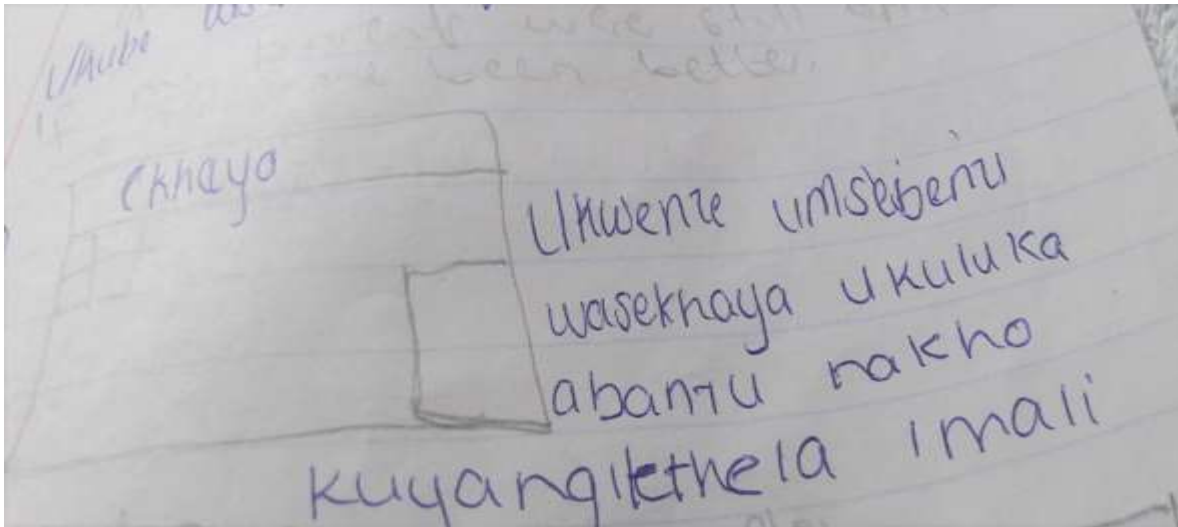 Ukube
ekhaya
Ukwenze umsebenzi
wasekhaya ukuluka
abantu nakho
kuyangilethela imali